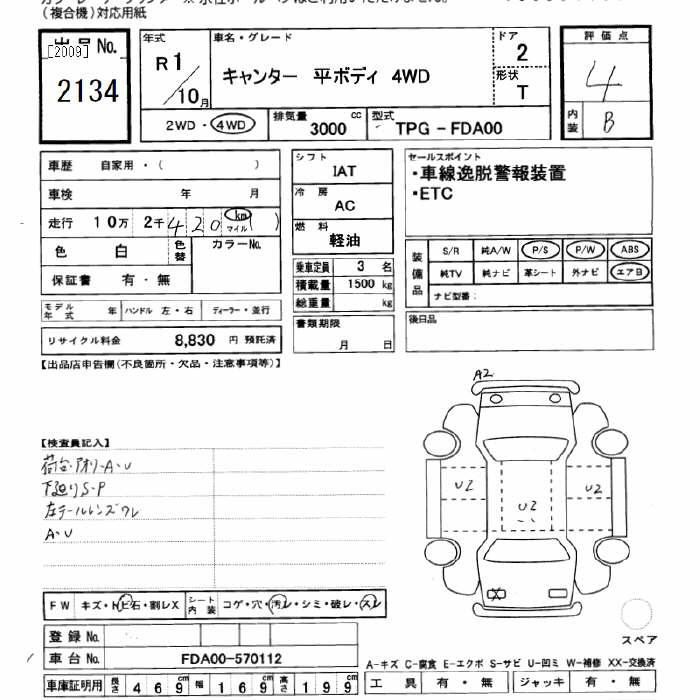 (複合機)対応用紙
出品No.
[2009]
2134
年式
R1/10月
車名・グレード
キャンター 平ボディ 4WD
ドア
2
形状
T
評価点
4
内装
B
2WD・4WD
排気量
3000 cc
型式
TPG-FDA00
車歴 自家用・( )
車検 年 月
走行 10万 2千 420 km マイル ( )
色 白
色替
カラーNo.
保証書 有・無
モデル年式 年
ハンドル 左・右
ディーラー・並行
リサイクル料金 8,830 円 預託済
シフト
IAT
冷房
AC
燃料
軽油
乗車定員 3 名
積載量 1500 kg
総重量 kg
書類期限
月 日
セールスポイント
・車線逸脱警報装置
・ETC
装備品
S/R 純A/W P/S P/W ABS
純TV 純ナビ 革シート 外ナビ エアB
ナビ型番:
後日品
【出品店申告欄(不良箇所・欠品・注意事項等)】
【検査員記入】
荷台アオリ・A・U
下廻りS・P
左テールレンズワレ
A・U
A2
U2
U2
U2
X
FW キズ・トビ石・割レX
シート内装 コゲ・穴・汚レ・シミ・破レ・スレ
登録No.
車台No. FDA00-570112
車庫証明用 長さ 469cm 幅 169cm 高さ 199cm
スペア
A-キズ C-腐食 E-エクボ S-サビ U-凹ミ W-補修 XX-交換済
工具 有・無 ジャッキ 有・無